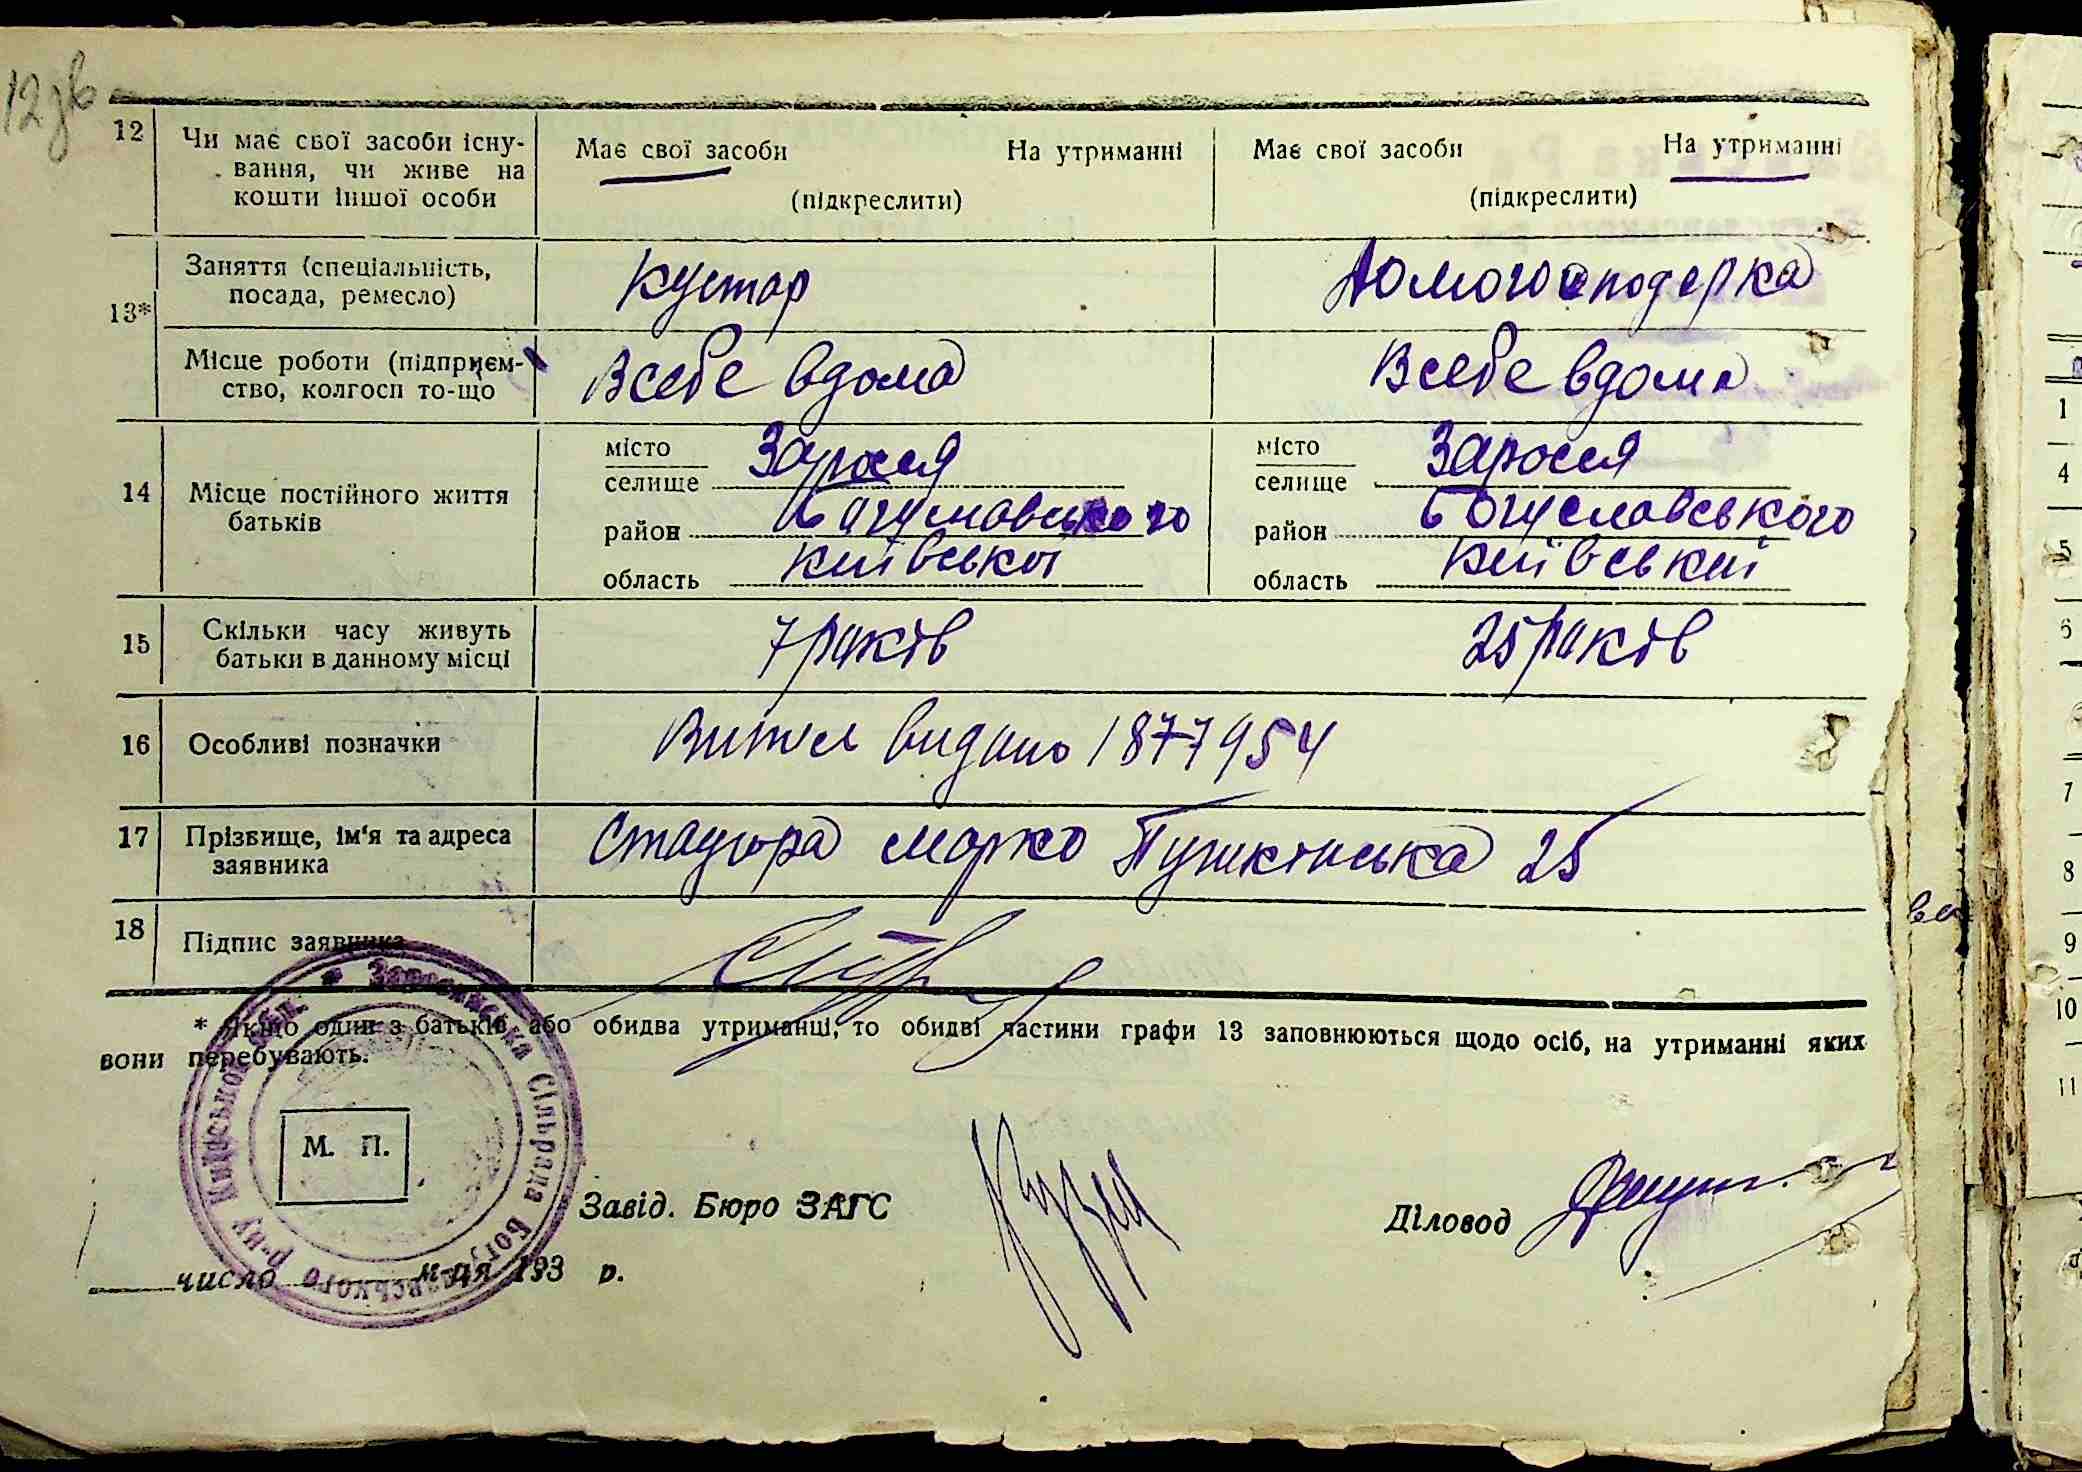 12зв
12 Чи має свої засоби існу-
вання, чи живе на
кошти іншої особи
Має свої засоби На утриманні
(підкреслити)
Має свої засоби На утриманні
(підкреслити)
13* Заняття (спеціальність,
посада, ремесло)
Кустар
Домогосподарка
Місце роботи (підприєм-
ство, колгосп то-що
В себе вдома
В себе вдома
14 Місце постійного життя
батьків
місто
селище Заросся
район Богуславського
область київської
місто
селище Заросся
район Богуславського
область Київський
15 Скільки часу живуть
батьки в данному місці
7 років
25 років
16 Особливі позначки
видано 1877954
17 Прізвище, ім'я та адреса
заявника
Марко Пушкінська 25
18 Підпис заявника
* Якщо один з батьків або обидва утриманці, то обидві частини графи 13 заповнюються щодо осіб, на утриманні яких
вони перебувають.
Зароснянська Сільрада Богуславського р-ну Київської обл.
М. П.
Завід. Бюро ЗАГС
Діловод
число м-ця 193 р.
1
4
5
6
7
8
9
10
11